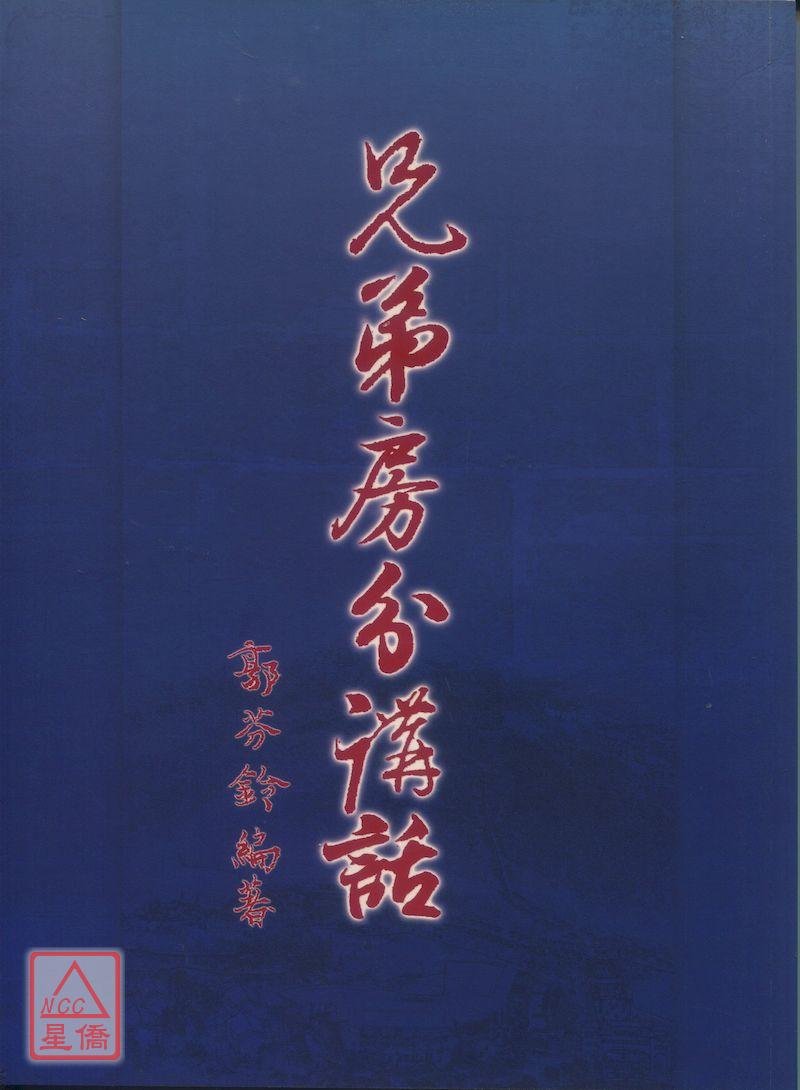 兄弟房分講話
郭芬鈴編著
NCC
星僑